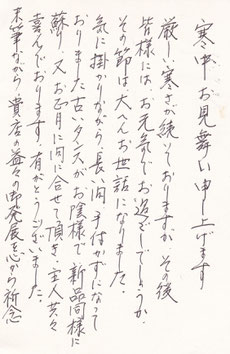 寒中お見舞い申し上げます
厳しい寒さが続いておりますが、その後
皆様には、お元気でお過ごしでしょうか.
その節は、大へんお世話になりました.
気に掛かりながら、長い間手付かずになって
おりました古いタンスがお陰様で新品同様に
蘇り、又お正月に間に合せて頂き、主人共々
喜んでおります. 有がとうございました.
末筆ながら、貴店の益々の御発展を心から祈念